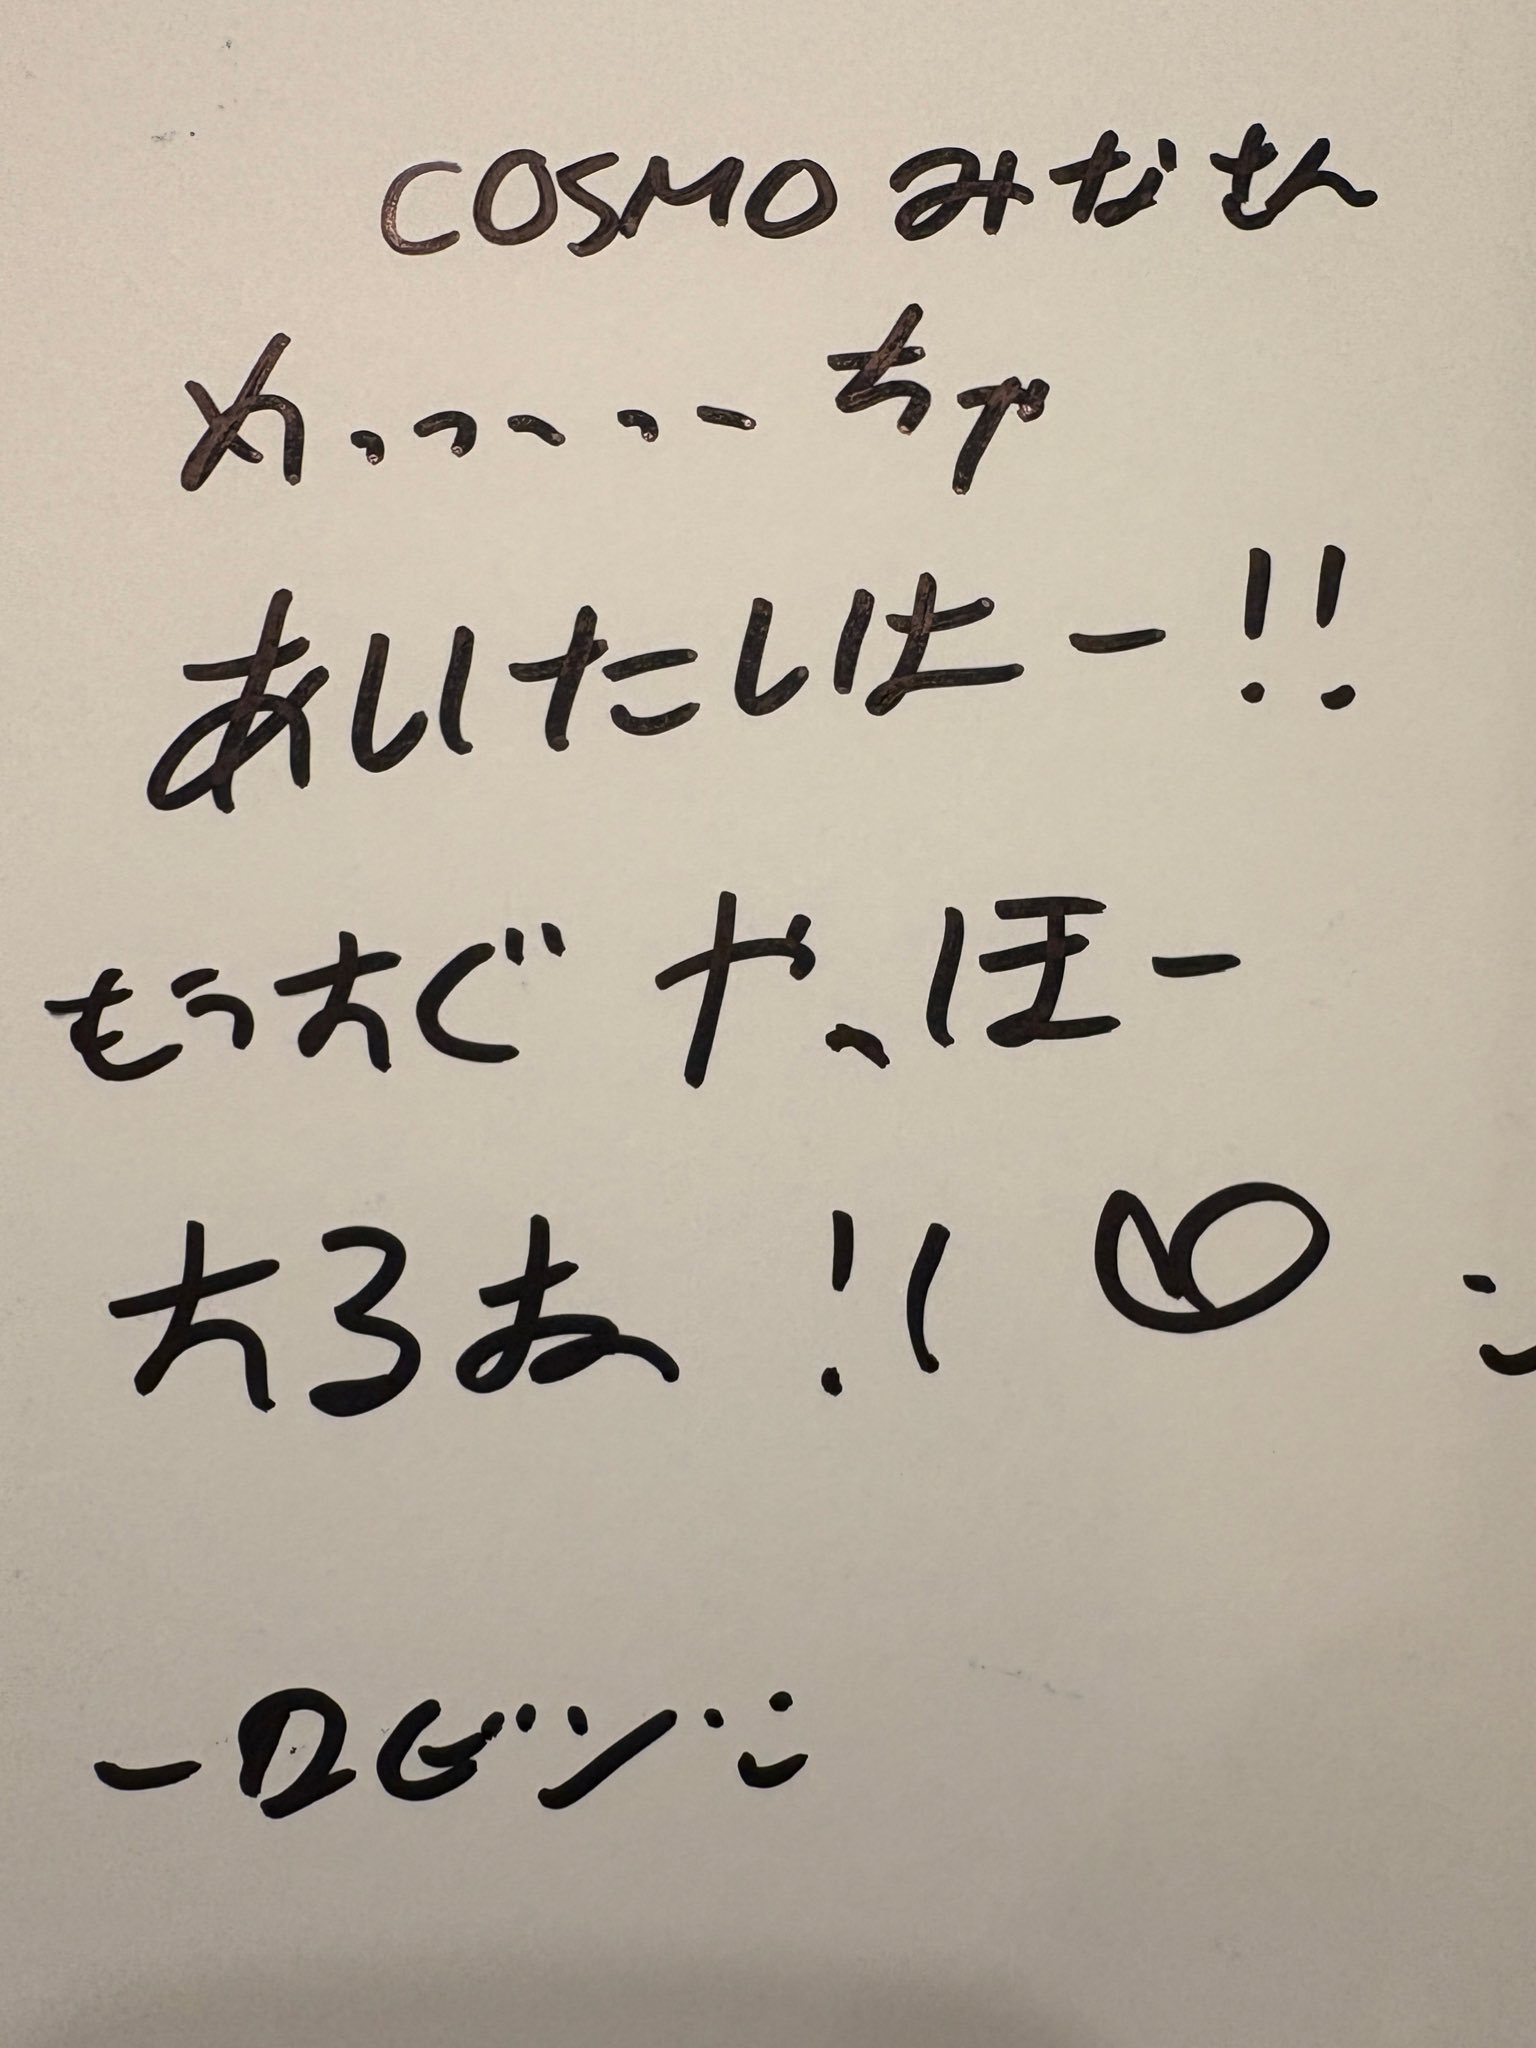 COSMO みなさん
めっっっっっちゃ
あいたいよー!!
もうすぐ やっほー
するよ!! ♡ :)
- ロビン :)